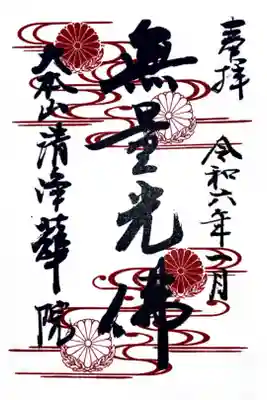 奉拝
令和六年二月
無量光佛
大本山清浄華院